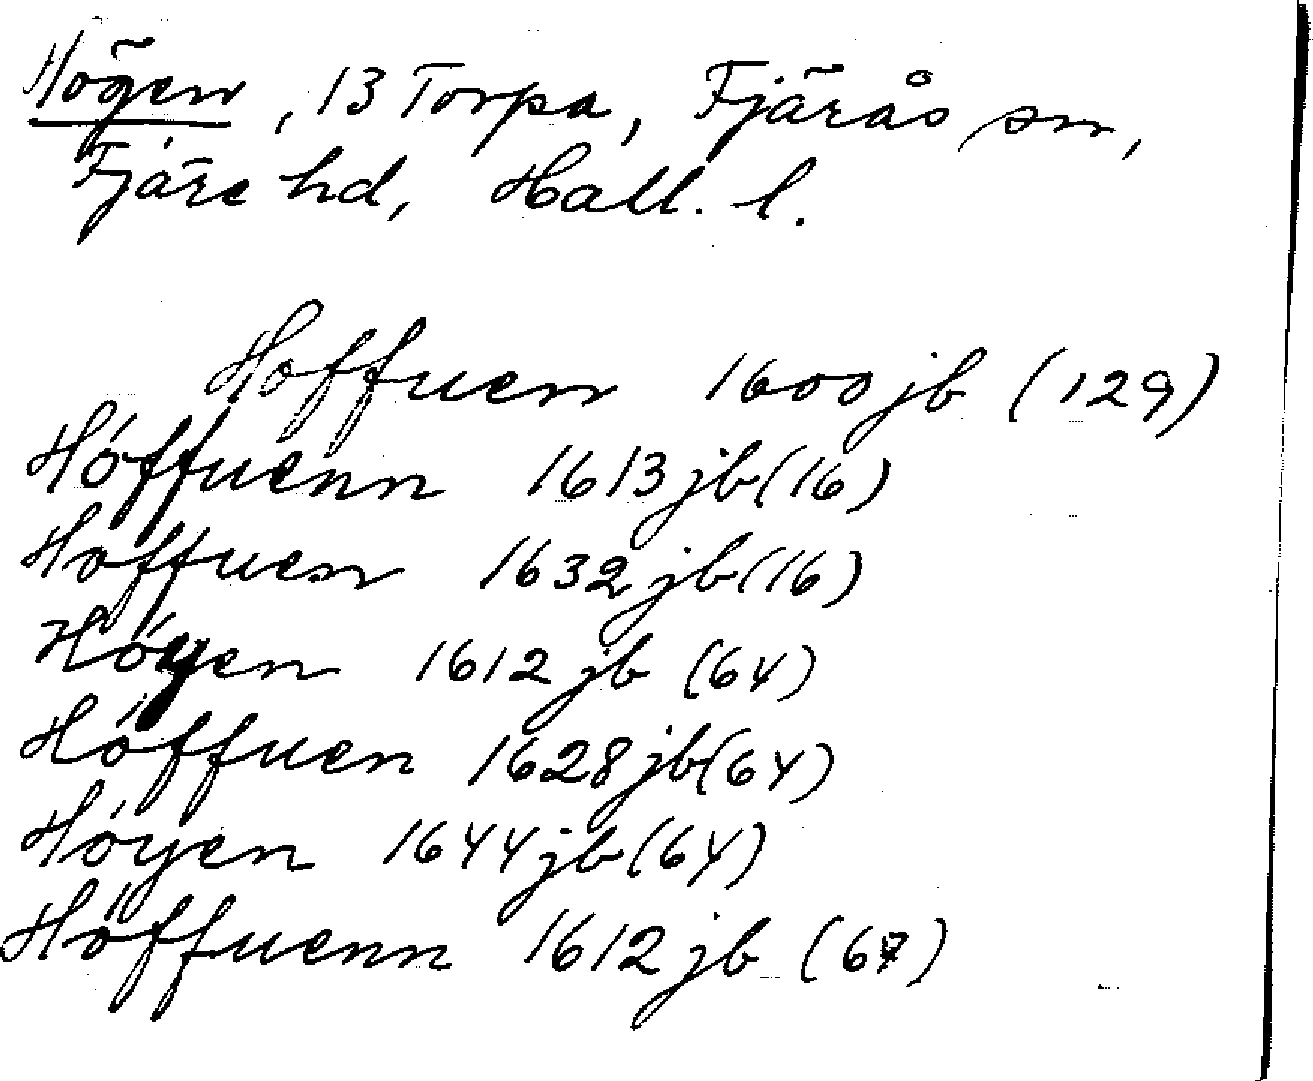 Högen, 13 Torpa, Fjärås sn,
Fjäre hd, Hall. l.
Hoffuen 1600 jb (129)
Hóffuenn 1613 jb (16)
Hoffuen 1632 jb (16)
Hóyen 1612 jb (64)
Hóffuen 1628 jb (64)
Hóyen 1644 jb (64)
Hóffuenn 1612 jb (67)